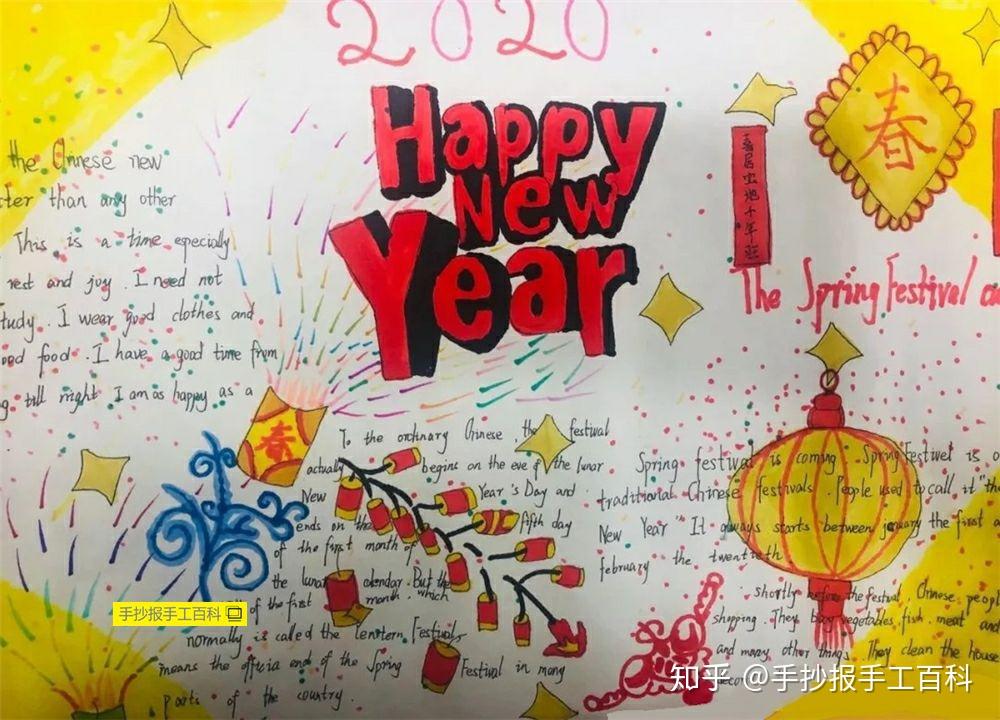 2020
Happy
New
Year
春
喜居宝地千年旺
The Spring Festival
the Chinese new
than any other
This is a time especially
rest and joy. I need not
I wear good clothes and
food. I have a good time from
till night I am as happy as a
春
To the ordinary Chinese, the festival
actually begins on the eve of the lunar
New Year's Day and
ends on the fifth day
of the first month of
the lunar calendar. But the
of the first month, which
normally is called the Lentern Festival,
means the officia end of the Spring
Festival in many
parts of the country.
Spring festival is coming. Spring Festivel is
traditional Chinese festivals. People used to call it "the
New Year" It always starts between january the first
february the twentieth
shortly before the festival, Chinese
shopping. They buy vegetables, fish, meat and
and many other things. They clean the house
手抄报手工百科
知乎 @手抄报手工百科